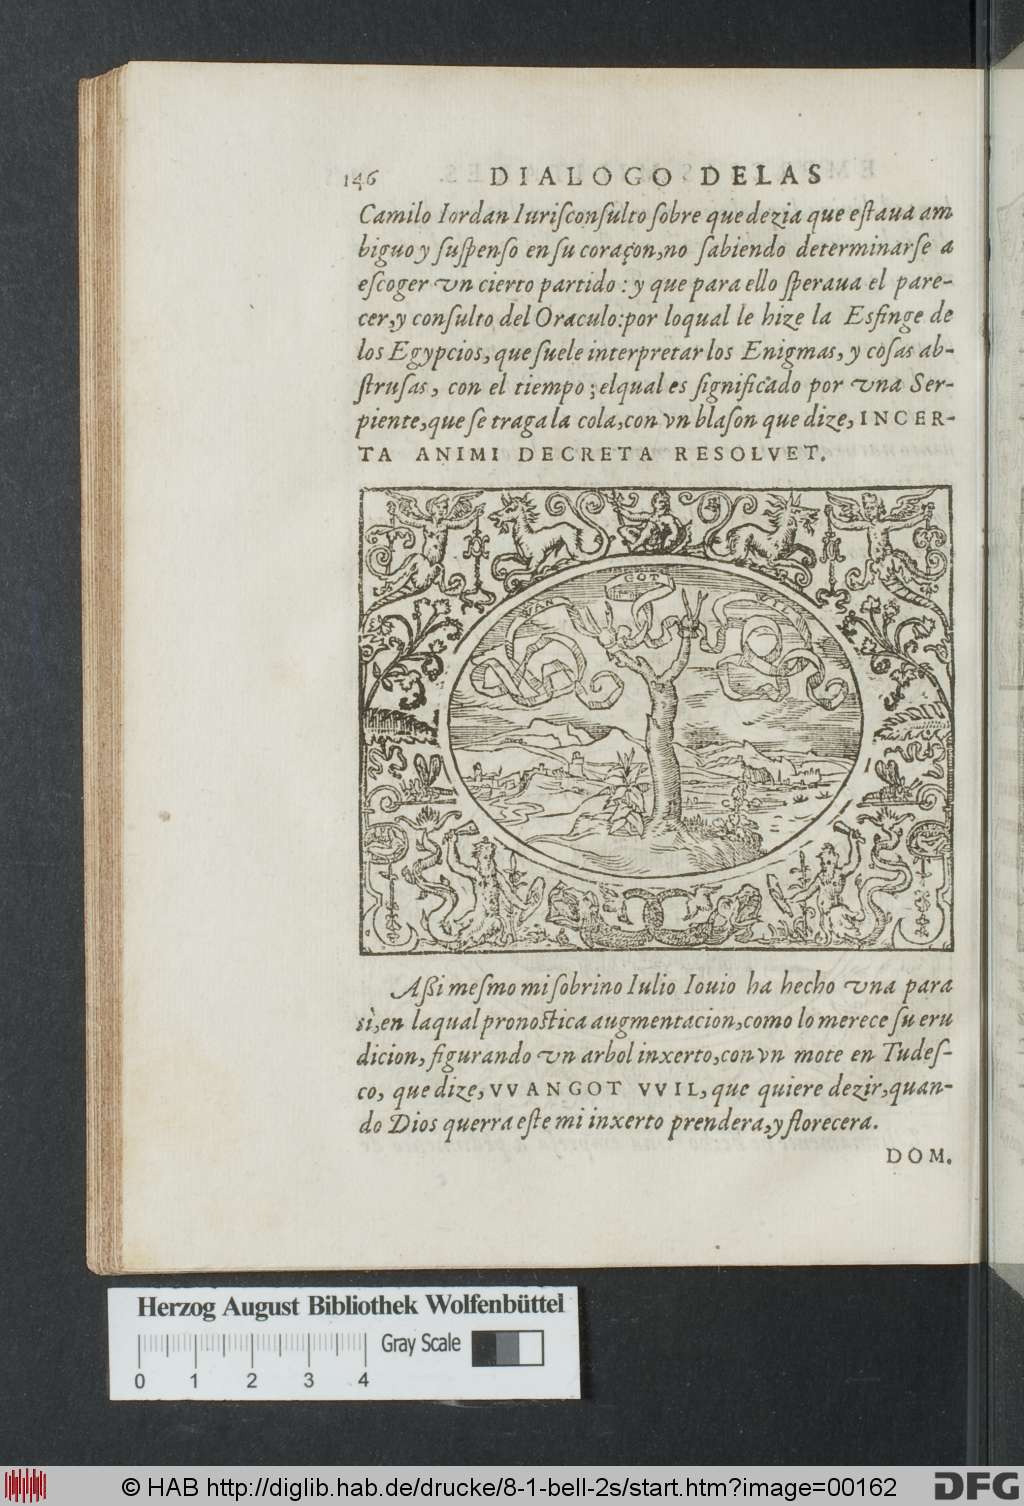 146 DIALOGO DELAS
Camilo Iordan Iuriſconſulto ſobre que dezia que eſtaua am
biguo y ſuſpenſo en su coraçon,no ſabiendo determinarſe a
eſcoger vn cierto partido : y que para ello ſperaua el pare-
cer,y conſulto del Oraculo:por loqual le hize la Esfinge de
los Egypcios, que ſuele interpretar los Enigmas, y coſas ab-
ſtruſas, con el tiempo ; elqual es ſignificado por vna Ser-
piente,que ſe traga la cola,con vn blaſon que dize, INCER-
TA ANIMI DECRETA RESOLVET.
VAN GOT VIL
Aßi meſmo mi ſobrino Iulio Iouio ha hecho vna para
sì,en laqual pronoſtica augmentacion,como lo merece ſu eru
dicion, figurando vn arbol inxerto,con vn mote en Tudeſ-
co, que dize, VVANGOT VVIL, que quiere dezir,quan-
do Dios querra eſte mi inxerto prendera,y florecera.
DOM.
Herzog August Bibliothek Wolfenbüttel
Gray Scale
0 1 2 3 4
© HAB http://diglib.hab.de/drucke/8-1-bell-2s/start.htm?image=00162
DFG